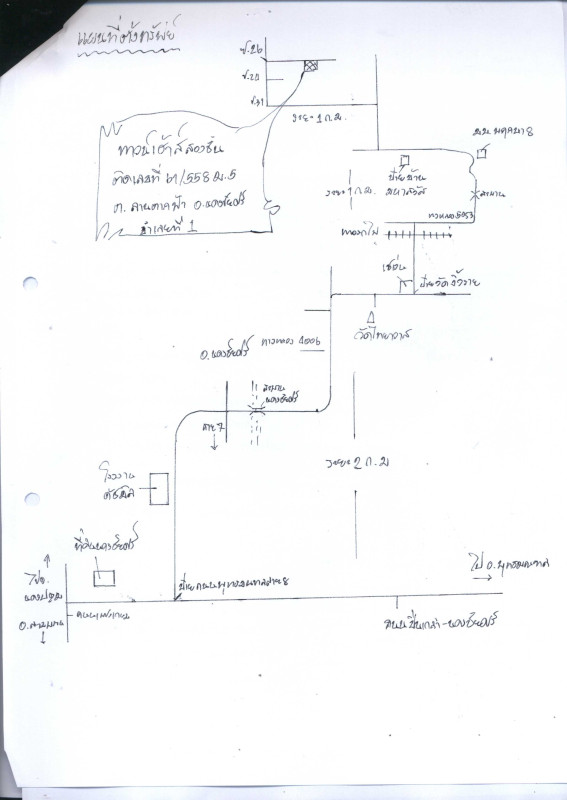 แผนที่ตั้งทรัพย์
ซ.26
ซ.20
ระยะ 1 ก.ม.
ทาวน์เฮ้าส์สองชั้น
ติดเลขที่ 61/558 ม.5
ต. ลานตากฟ้า อ.นครชัยศรี
ทำเลที่ 1
ป้ายบ้าน
มหาสวัส
ระยะ 1 ก.ม.
สะพาน
ทางรถไฟ
เซเว่น
ป้ายวัดงิ้วราย
วัดไทยาวาส
ทางหลวง 4006
อ.นครชัยศรี
สะพาน
นครชัยศรี
สาย 7
ระยะ 2 ก.ม
โรงงาน
ที่ดินนครชัยศรี
ไป อ.พุทธมณฑล
ไป จ.
นครปฐม
อ.สามพราน
ถนนเพชรเกษม
ป้ายถนนพุทธมณฑลสาย 8
ถนนปิ่นเกล้า-นครชัยศรี